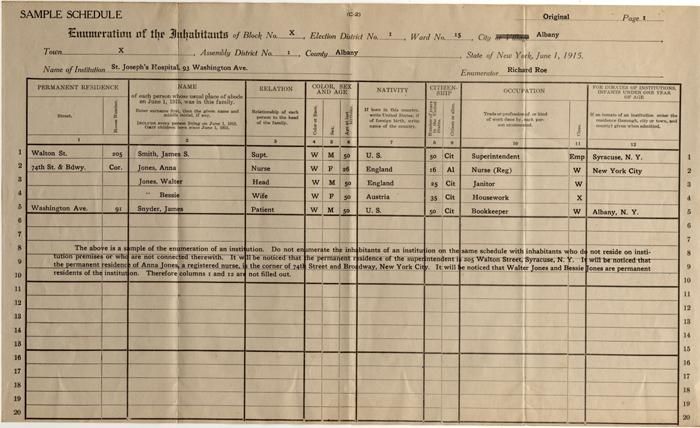 SAMPLE SCHEDULE
(C-2)
Original Page 1
Enumeration of the Inhabitants of Block No. X , Election District No. 1 , Ward No. 15 , City Albany
Town X , Assembly District No. 1 , County Albany State of New York, June 1, 1915.
Name of Institution St. Joseph's Hospital, 93 Washington Ave. Enumerator Richard Roe
PERMANENT RESIDENCE NAME RELATION COLOR, SEX AND AGE NATIVITY CITIZENSHIP OCCUPATION FOR INMATES OF INSTITUTIONS, INFANTS UNDER ONE YEAR OF AGE
of each person whose usual place of abode on June 1, 1915, was in this family.
Enter surname first, then the given name and middle initial, if any.
Include every person living on June 1, 1915. Omit children born since June 1, 1915.
Relationship of each person to the head of the family.
If born in this country, write United States; if of foreign birth, write name of the country.
Trade or profession of, or kind of work done by, each person enumerated.
If an inmate of an institution, enter the residence (borough, city or town, and county) given when admitted.
Street. House Number. Color or Race. Sex. Citizen or alien. Class.
1 2 3 4 5 6 7 8 9 10 11 12
1 Walton St. 205 Smith, James S. Supt. W M 50 U. S. 50 Cit Superintendent Emp Syracuse, N. Y. 1
2 74th St. & Bdwy. Cor. Jones, Anna Nurse W F 26 England 16 Al Nurse (Reg) W New York City 2
3 Jones, Walter Head W M 50 England 25 Cit Janitor W 3
4 " Bessie Wife W F 50 Austria 35 Cit Housework X 4
5 Washington Ave. 91 Snyder, James Patient W M 50 U. S. 50 Cit Bookkeeper W Albany, N. Y. 5
6 6
7 7
8 The above is a sample of the enumeration of an institution. Do not enumerate the inhabitants of an institution on the same schedule with inhabitants who do not reside on insti- 8
9 tution premises or who are not connected therewith. It will be noticed that the permanent residence of the superintendent is 205 Walton Street, Syracuse, N. Y. It will be noticed that 9
the permanent residence of Anna Jones, a registered nurse, is the corner of 74th Street and Broadway, New York City. It will be noticed that Walter Jones and Bessie Jones are permanent
10 residents of the institution. Therefore columns 1 and 12 are not filled out. 10
11 11
12 12
13 13
14 14
15 15
16 16
17 17
18 18
19 19
20 20